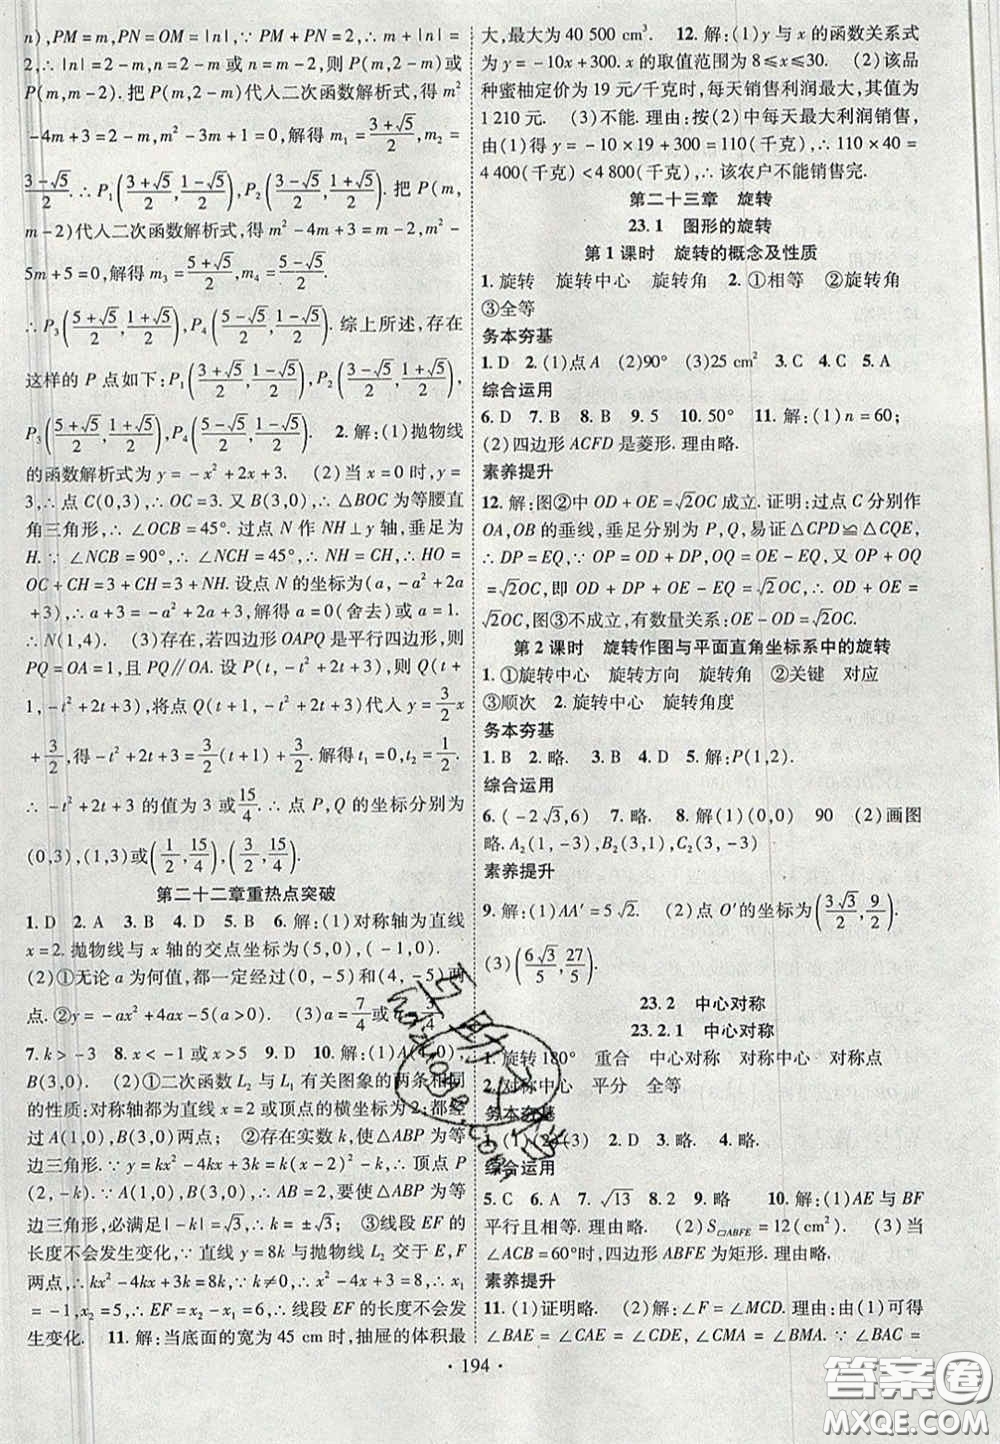 n),PM=m,PN=OM=|n|,∵PM+PN=2,∴m+|n|=2,
∴|n|=2-m,∴n=2-m或n=m-2,则P(m,2-m)或
P(m,m-2).把P(m,2-m)代入二次函数解析式,得m²
-4m+3=2-m,∴m²-3m+1=0,解得m₁=(3+√5)/2,m₂=
(3-√5)/2.∴P₁((3+√5)/2,(1-√5)/2),P₂((3-√5)/2,(1+√5)/2).把P(m,
m-2)代入二次函数解析式,得m²-4m+3=m-2,∴m²-
5m+5=0,解得m₃=(5+√5)/2,m₄=(5-√5)/2.
∴P₃((5+√5)/2,(1+√5)/2),P₄((5-√5)/2,(1-√5)/2).综上所述,存在
这样的P点如下:P₁((3+√5)/2,(1-√5)/2),P₂((3-√5)/2,(1+√5)/2),
P₃((5+√5)/2,(1+√5)/2),P₄((5-√5)/2,(1-√5)/2). 2.解:(1)抛物线
的函数解析式为y=-x²+2x+3. (2)当x=0时,y=
3,∴点C(0,3),∴OC=3.又B(3,0),∴△BOC为等腰直
角三角形,∴∠OCB=45°.过点N作NH⊥y轴,垂足为
H.∵∠NCB=90°,∴∠NCH=45°,∴NH=CH,∴HO=
OC+CH=3+CH=3+NH.设点N的坐标为(a,-a²+2a
+3),∴a+3=-a²+2a+3,解得a=0(舍去)或a=1.
∴N(1,4). (3)存在,若四边形OAPQ是平行四边形,则
PQ=OA=1,且PQ∥OA.设P(t,-t²+2t+3),则Q(t+
1,-t²+2t+3),将点Q(t+1,-t²+2t+3)代入y=3/2x
+3/2,得-t²+2t+3=3/2(t+1)+3/2.解得t₁=0,t₂=1/2.
∴-t²+2t+3的值为3或15/4.∴点P,Q的坐标分别为
(0,3),(1,3)或(1/2,15/4),(3/2,15/4).
第二十二章重热点突破
1.D 2.A 3.B 4.D 5.B 6.解:(1)对称轴为直线
x=2.抛物线与x轴的交点坐标为(5,0),(-1,0).
(2)①无论a为何值,都一定经过(0,-5)和(4,-5)两
点.②y=-ax²+4ax-5(a>0). (3)a=7/4或
7.k>-3 8.x<-2或x>5 9.D 10.解:(1)A(1,0),
B(3,0). (2)①二次函数L₂与L₁有关图象的两条相同
的性质:对称轴都为直线x=2或顶点的横坐标为2;都经
过A(1,0),B(3,0)两点; ②存在实数k,使△ABP为等
边三角形.∵y=kx²-4kx+3k=k(x-2)²-k,∴顶点P
(2,-k).∵A(1,0),B(3,0),∴AB=2,要使△ABP为等
边三角形,必满足|-k|=√3,∴k=±√3; ③线段EF的
长度不会发生变化,∵直线y=8k与抛物线L₂交于E,F
两点,∴kx²-4kx+3k=8k,∵k≠0,∴x²-4x+3=8,∴x₁
=-1,x₂=5,∴EF=x₂-x₁=6,∴线段EF的长度不会发
生变化. 11.解:当底面的宽为45 cm时,抽屉的体积最
大,最大为40 500 cm³. 12.解:(1)y与x的函数关系式
为y=-10x+300.x的取值范围为8≤x≤30. (2)该品
种蜜柚定价为19元/千克时,每天销售利润最大,其值为
1 210元. (3)不能.理由:按(2)中每天最大利润销售,
由(1)得y=-10×19+300=110(千克).∴110×40=
4 400(千克)<4 800(千克),∴该农户不能销售完.
第二十三章 旋转
23.1 图形的旋转
第1课时 旋转的概念及性质
1.旋转 旋转中心 旋转角 2.①相等 ②旋转角
③全等
务本夯基
1.D 2.(1)点A (2)90° (3)25 cm² 3.C 4.C 5.A
综合运用
6.D 7.B 8.B 9.5 10.50° 11.解:(1)n=60;
(2)四边形ACFD是菱形.理由略.
素养提升
12.解:图②中OD+OE=√2OC成立.证明:过点C分别作
OA,OB的垂线,垂足分别为P,Q,易证△CPD≌△CQE,
∴DP=EQ,∵OP=OD+DP,OQ=OE-EQ.又OP+OQ
=√2OC,即OD+DP+OE-EQ=√2OC,∴OD+OE=
√2OC,图③不成立,有数量关系:OE-OD=√2OC.
第2课时 旋转作图与平面直角坐标系中的旋转
1.①旋转中心 旋转方向 旋转角 ②关键 对应
③顺次 2.旋转中心 旋转角度
务本夯基
1.B 2.略. 3.B 4.D 5.解:P(1,2).
综合运用
6.(-2√3,6) 7.略. 8.解(1)(0,0) 90 (2)画图
略.A₂(1,-3),B₂(3,1),C₂(3,-3)
素养提升
9.解:(1)AA′=5√2. (2)点O′的坐标为(3√3/2,9/2).
(3)(6√3/5,27/5).
23.2 中心对称
23.2.1 中心对称
1.旋转180° 重合 中心对称 对称中心 对称点
2.对称中心 平分 全等
务本夯基
1.(1)(2)(3) 2.D 3.略. 4.略.
综合运用
5.C 6.A 7.√13 8.2 9.略 10.解:(1)AE与BF
平行且相等.理由略. (2)S□ABFE=12(cm²). (3)当
∠ACB=60°时,四边形ABFE为矩形.理由略.
素养提升
11.(1)证明略. (2)解:∠F=∠MCD.理由:由(1)可得
∠BAE=∠CAE=∠CDE,∠CMA=∠BMA.∵∠BAC=
·194·
互助文档
hdzuoye.com
答案圈
MXQE.COM